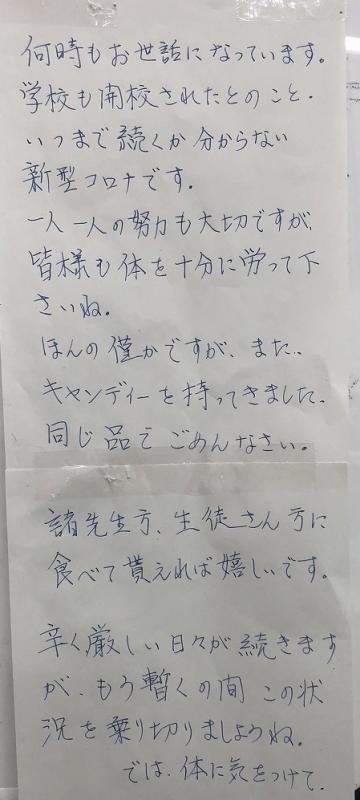 何時もお世話になっています。
学校も開校されたとのこと.
いつまで続くか分からない
新型コロナです.
一人一人の努力も大切ですが、
皆様も体を十分に労って下
さいね.
ほんの僅かですが、また、
キャンディーを持ってきました.
同じ品でごめんなさい。
諸先生方、生徒さん方に
食べて貰えれば嬉しいです。
辛く厳しい日々が続きます
が、もう暫くの間この状
況を乗り切りましょうね.
では、体に気をつけて.